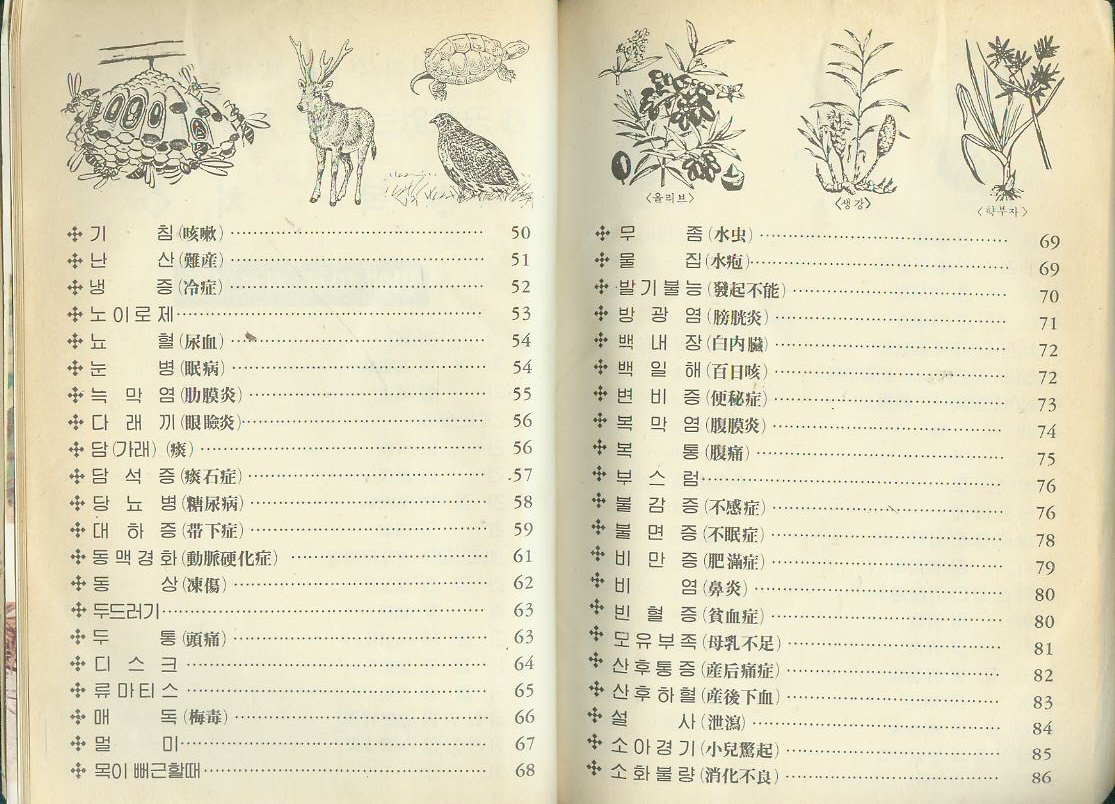 기 침 (咳嗽) 50
난 산 (難産) 51
냉 증 (冷症) 52
노이로제 53
뇨 혈 (尿血) 54
눈 병 (眠病) 54
늑 막 염 (肋膜炎) 55
다 래 끼 (眼瞼炎) 56
담(가래) (痰) 56
담 석 증 (痰石症) 57
당 뇨 병 (糖尿病) 58
대 하 증 (帯下症) 59
동맥경화 (動脈硬化症) 61
동 상 (凍傷) 62
두드러기 63
두 통 (頭痛) 63
디 스 크 64
류마티스 65
매 독 (梅毒) 66
멀 미 67
목이 뻐근할때 68
〈올리브〉
〈생강〉
〈학부자〉
무 종 (水虫) 69
물 집 (水疱) 69
발기불능 (發起不能) 70
방 광 염 (膀胱炎) 71
백 내 장 (白内臟) 72
백 일 해 (百日咳) 72
변 비 증 (便秘症) 73
복 막 염 (腹膜炎) 74
복 통 (腹痛) 75
부 스 럼 76
불 감 증 (不感症) 76
불 면 증 (不眠症) 78
비 만 증 (肥滿症) 79
비 염 (鼻炎) 80
빈 혈 증 (貧血症) 80
모유부족 (母乳不足) 81
산후통증 (産后痛症) 82
산후하혈 (産後下血) 83
설 사 (泄瀉) 84
소아경기 (小兒驚起) 85
소화불량 (消化不良) 86